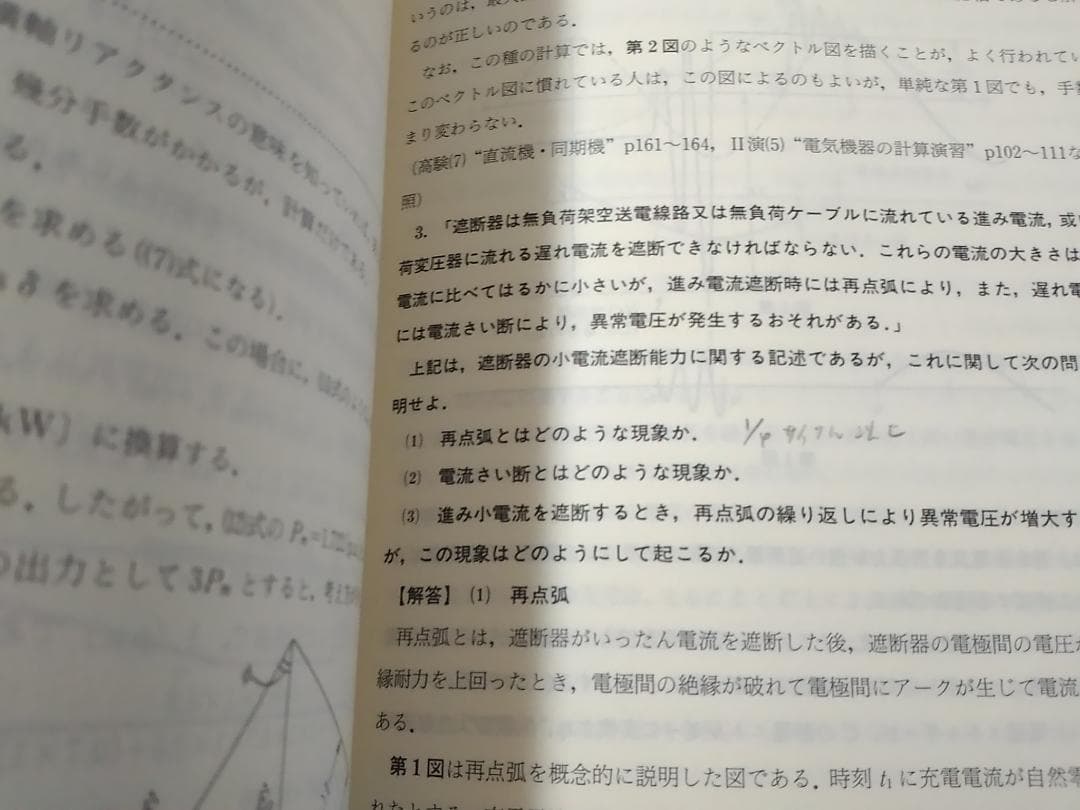 横軸リアクタンスの意味を知っていれば
幾分手数がかかるが，計算だけである
る．
を求める((7)式になる)．
δを求める．この場合に，
kW〕に換算する．
る．したがって，
の出力として
とすると，
いうのは，
るのが正しいのである．
なお，この種の計算では，第2図のようなベクトル図を描くことが，よく行われてい
このベクトル図に慣れている人は，この図によるのもよいが，単純な第1図でも，手数
まり変わらない．
(高験(7)“直流機・同期機”p161〜164，II演(5)“電気機器の計算演習”p102〜111な
照)
3．「遮断器は無負荷架空送電線路又は無負荷ケーブルに流れている進み電流，或
荷変圧器に流れる遅れ電流を遮断できなければならない．これらの電流の大きさは
電流に比べてはるかに小さいが，進み電流遮断時には再点弧により，また，遅れ電
には電流さい断により，異常電圧が発生するおそれがある．」
上記は，遮断器の小電流遮断能力に関する記述であるが，これに関して次の問
明せよ．
(1) 再点弧とはどのような現象か．
(2) 電流さい断とはどのような現象か．
(3) 進み小電流を遮断するとき，再点弧の繰り返しにより異常電圧が増大す
が，この現象はどのようにして起こるか．
【解答】 (1) 再点弧
再点弧とは，遮断器がいったん電流を遮断した後，遮断器の電極間の電圧が
縁耐力を上回ったとき，電極間の絶縁が破れて電極間にアークが生じて電流
ある．
第1図は再点弧を概念的に説明した図である．時刻t₁に充電電流が自然零